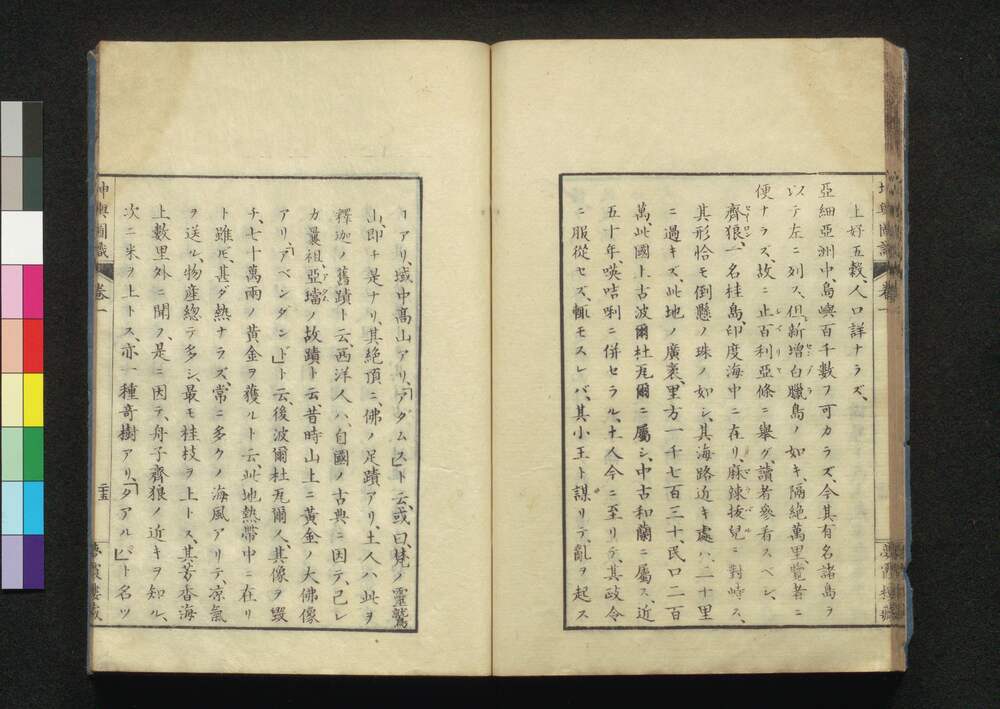 上好五穀、人口詳ナラズ、
亞細亞洲中、島嶼百千數フ可カラズ、今其有名諸島ヲ
以テ左ニ列ス、但新增白臘島ノ如キ、隔絶萬里覽者ニ
便ナラズ、故ニ止百利亞條ニ舉グ讀者參看スベシ、
齊狼一名桂島、印度海中ニ在リ、麻辣抜兒ニ對峙ス、
其形恰モ倒懸ノ珠ノ如シ、其海路近キ處ハ、二十里
ニ過キズ、此地ノ廣袤、里方一千七百三十、民口二百
萬、此國上古波爾杜瓦爾ニ屬シ、中古和蘭ニ屬ス、近
五十年、嘆咭唎ニ併セラル、土人今ニ至リテ、其政令
ニ服從セズ、輒モスレバ、其小王ト謀リテ、亂ヲ起ス
ヿアリ、域中高山アリ、「アダムス」ト云、或曰、梵ノ靈鷲
山、即チ是ナリ、其絶頂ニ、佛ノ足蹟アリ、土人ハ此ヲ
釋迦ノ舊蹟ト云、西洋人ハ、自國ノ古典ニ因テ、己レ
カ曩祖亞當ノ故蹟ト云昔時山上ニ黃金ノ大佛像
アリ、「アベンダント」ト云、後波爾杜瓦爾人、其像ヲ毀
チ、七十萬兩ノ黃金ヲ獲ルト云、此地熱帶中ニ在リ
ト雖𪜈、甚ダ熱ナラズ、常ニ多クノ海風アリテ、涼氣
ヲ送ル、物産總テ多シ、最モ桂枝ヲ上トス、其芳香海
上數里外ニ聞フ、是ニ因テ、舟子齊狼ノ近キヲ知ル、
次ニ米ヲ上トス、亦一種奇樹アリ、「タアルパ」ト名ツ
坤輿圖識
卷一
二十五
夢霞樓藏